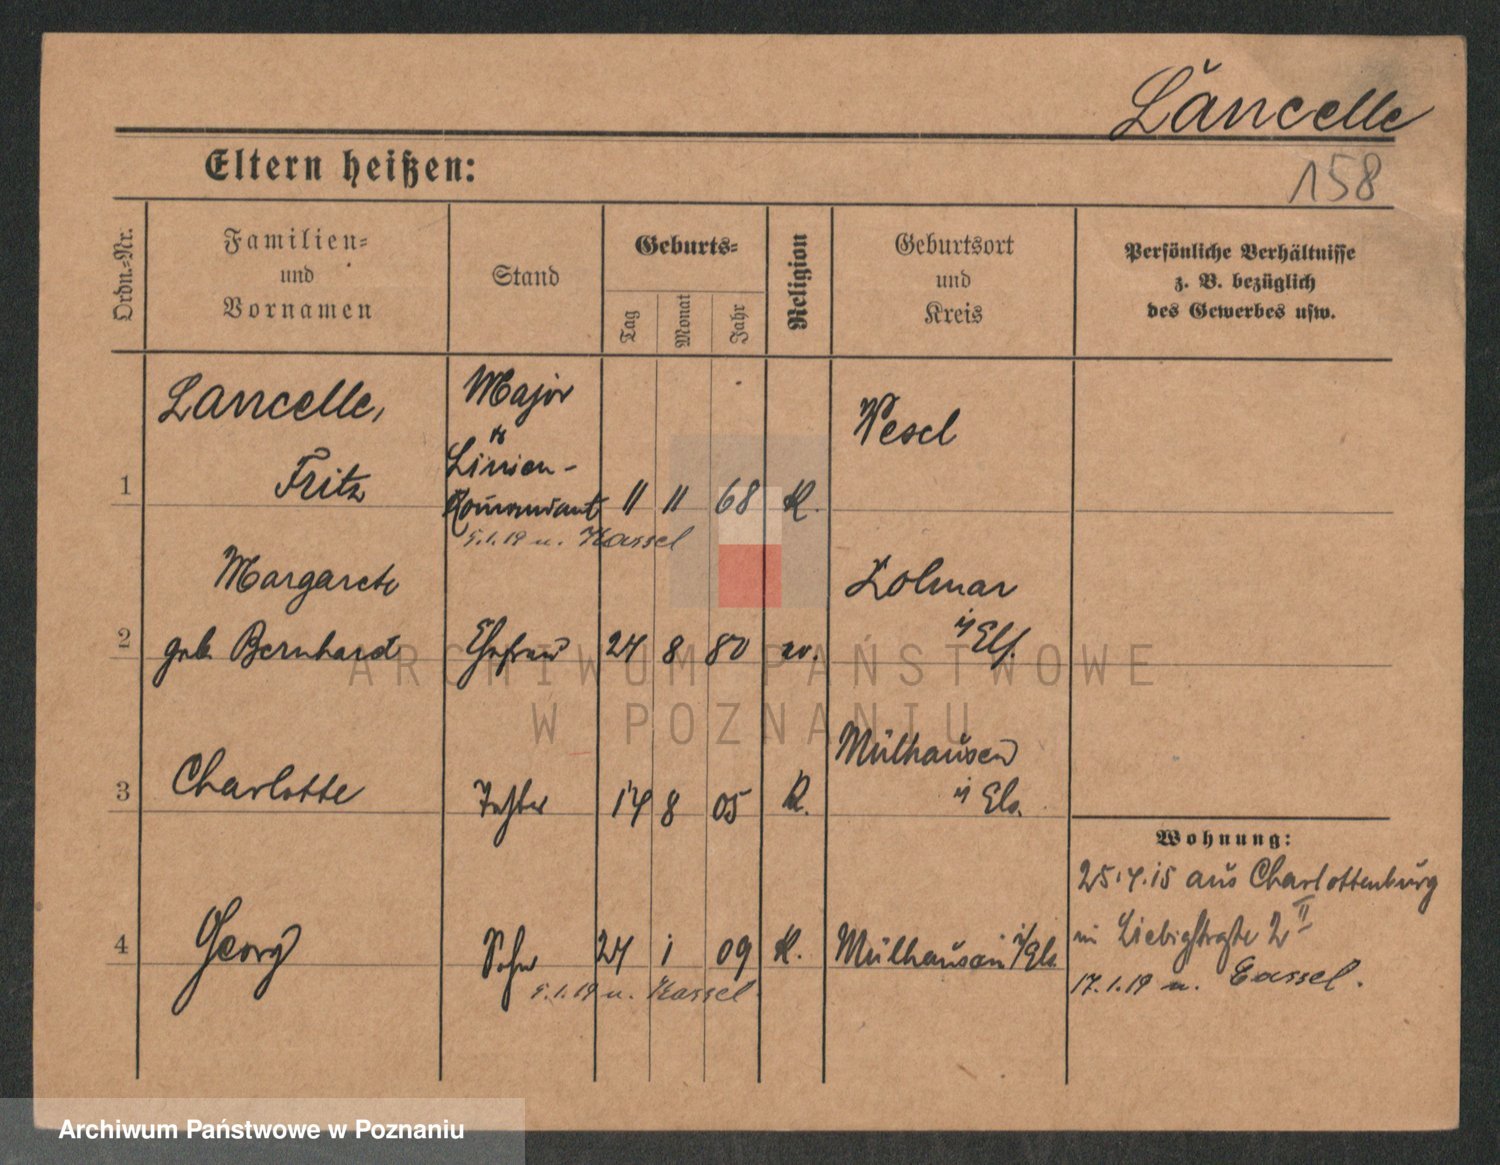 Lancelle
158
Eltern heißen:
Ordn.-Nr.
Familien-
und
Vornamen
Stand
Geburts-
Tag
Monat
Jahr
Religion
Geburtsort
und
Kreis
Persönliche Verhältnisse
z. B. bezüglich
des Gewerbes usw.
1
Lancelle,
Fritz
Major
Linien-
Komandant
11 11 68 K.
Wesel
5.1.19 n. Kassel
2
Margarete
geb. Bernhard
Ehefrau
24 8 80 ev.
Kolmar
i/ Els.
3
Charlotte
Tochter
14 8 05 K.
Mülhausen
i/ Els.
4
Georg
Sohn
24 1 09 K.
Mülhausen i/Els.
5.1.19 n. Kassel.
Wohnung:
25.4.15 aus Charlottenburg
in Liebigstraße 2 II
17.1.19 n. Cassel.
ARCHIWUM PAŃSTWOWE
W POZNANIU
Archiwum Państwowe w Poznaniu